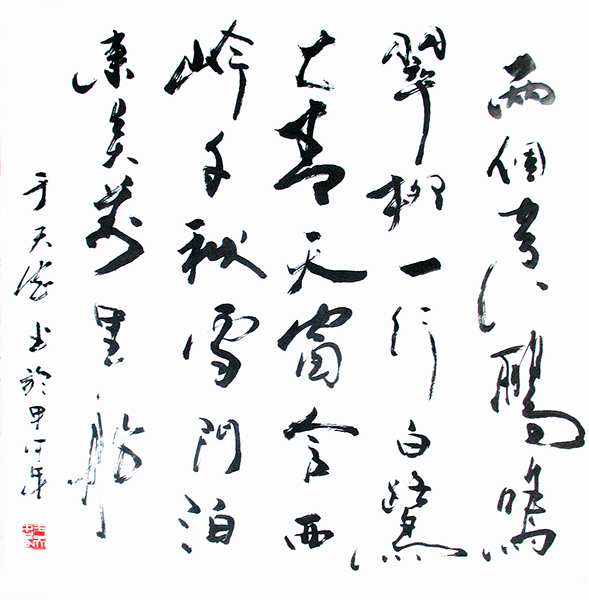 兩個黃鸝鳴
翠柳一行白鷺
上青天窗含西
岭千秋雪門泊
東吳萬里船
于天德书於甲午年